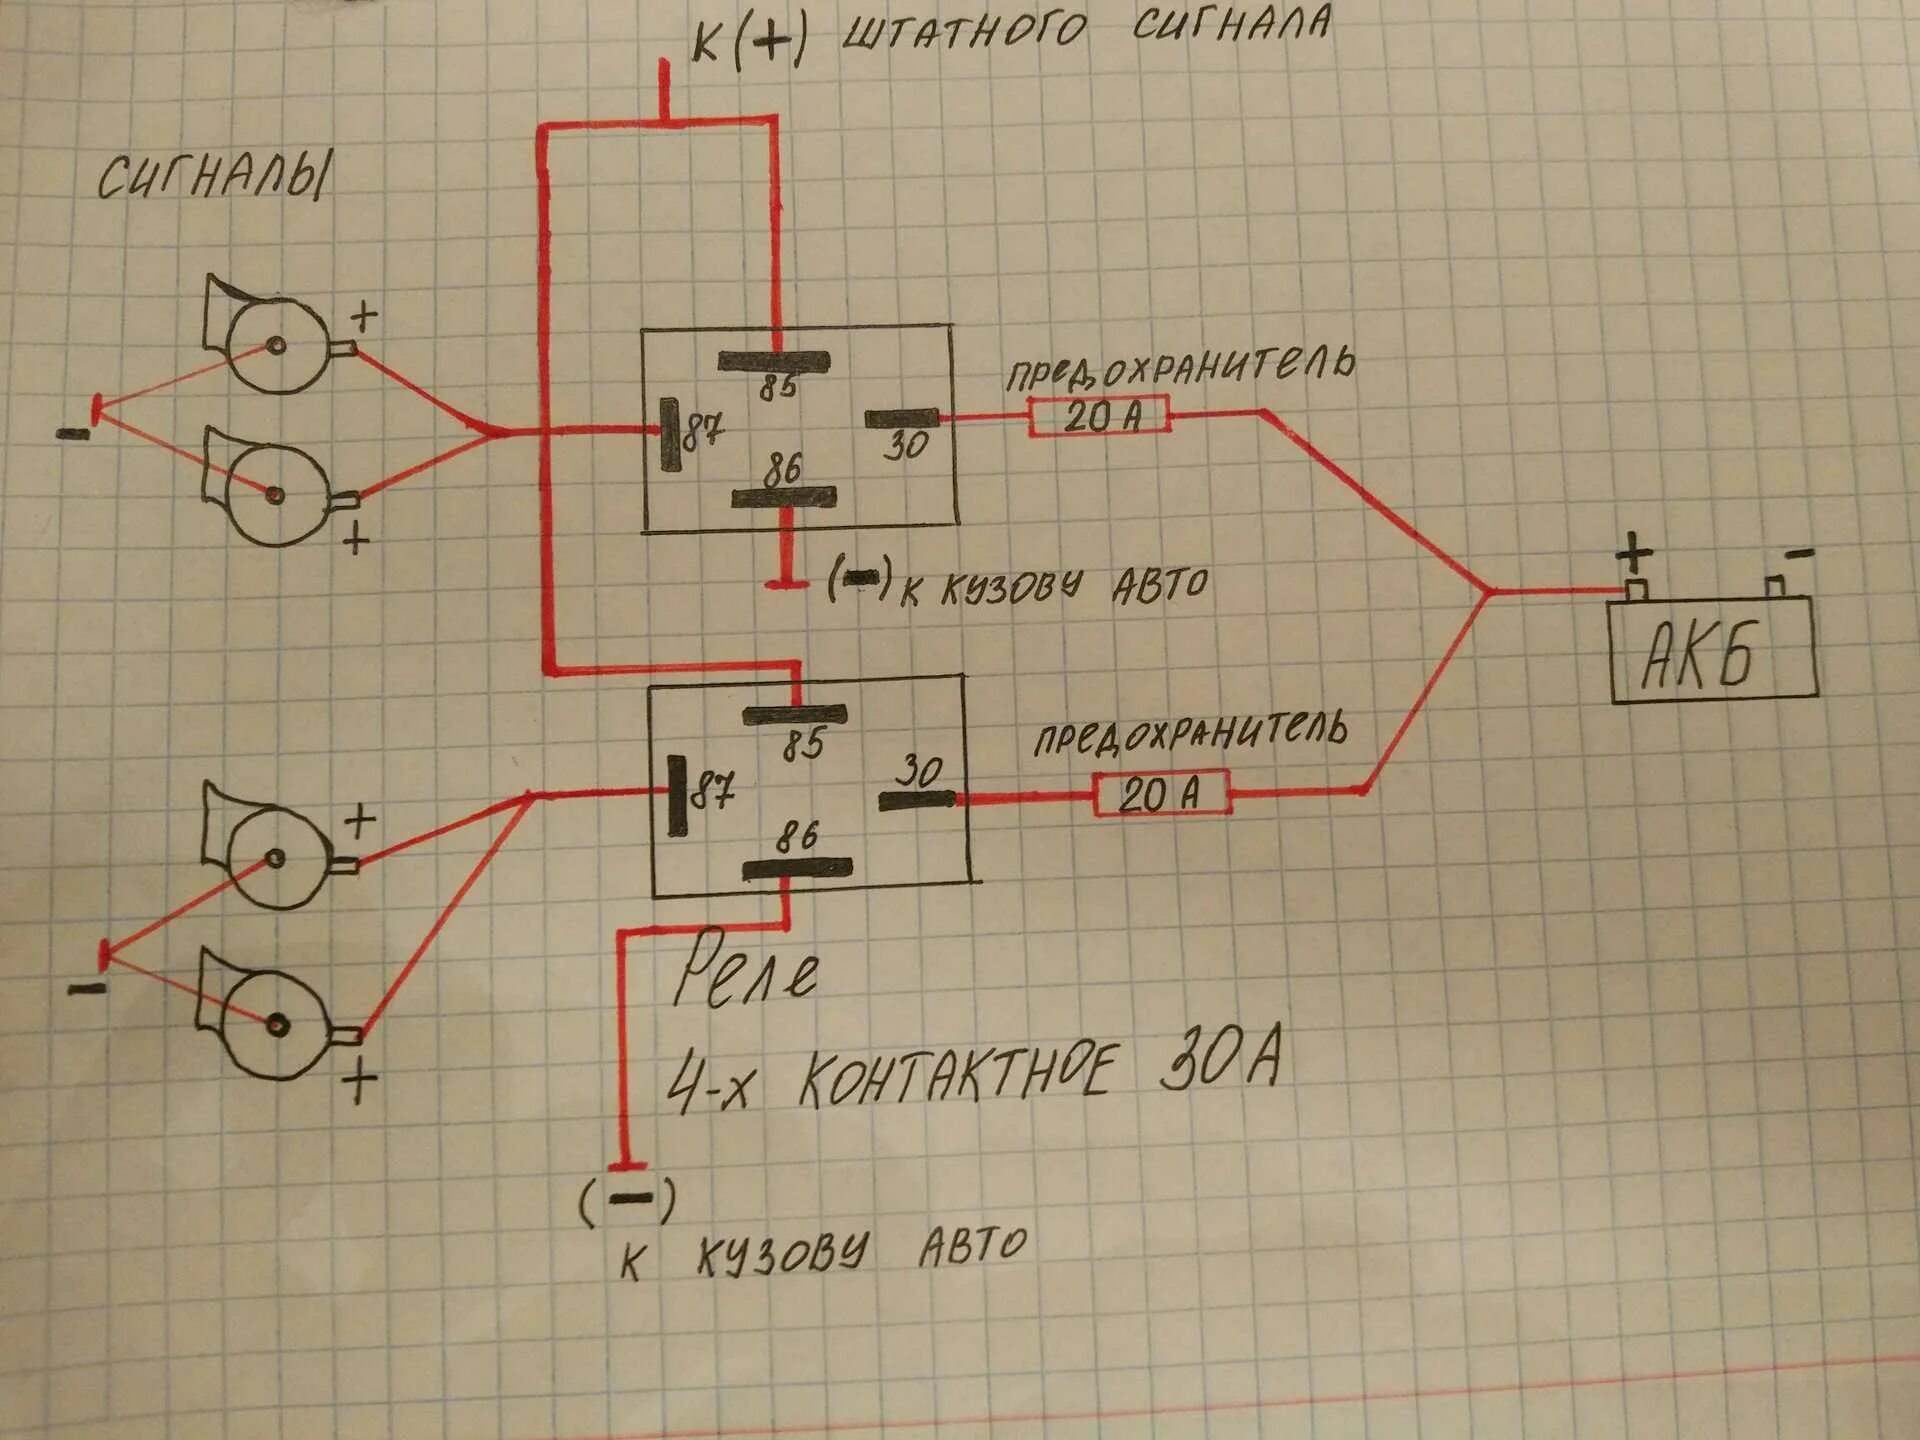 К (+) ШТАТНОГО СИГНАЛА
СИГНАЛЫ
+
+
-
85
87
30
86
ПРЕДОХРАНИТЕЛЬ
20 А
(-) К КУЗОВУ АВТО
+ -
АКБ
85
87
30
86
ПРЕДОХРАНИТЕЛЬ
20 А
+
+
-
Реле
4-х КОНТАКТНОЕ 30А
(-)
К КУЗОВУ АВТО